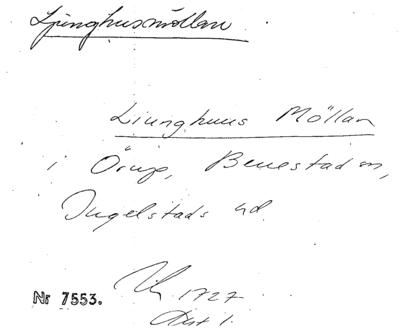 Ljunghusmöllan
Ljunghuus Möllan
i Örup, Benestad sn,
Ingelstads hd.
1727
Nr 7553.
Akt 1.